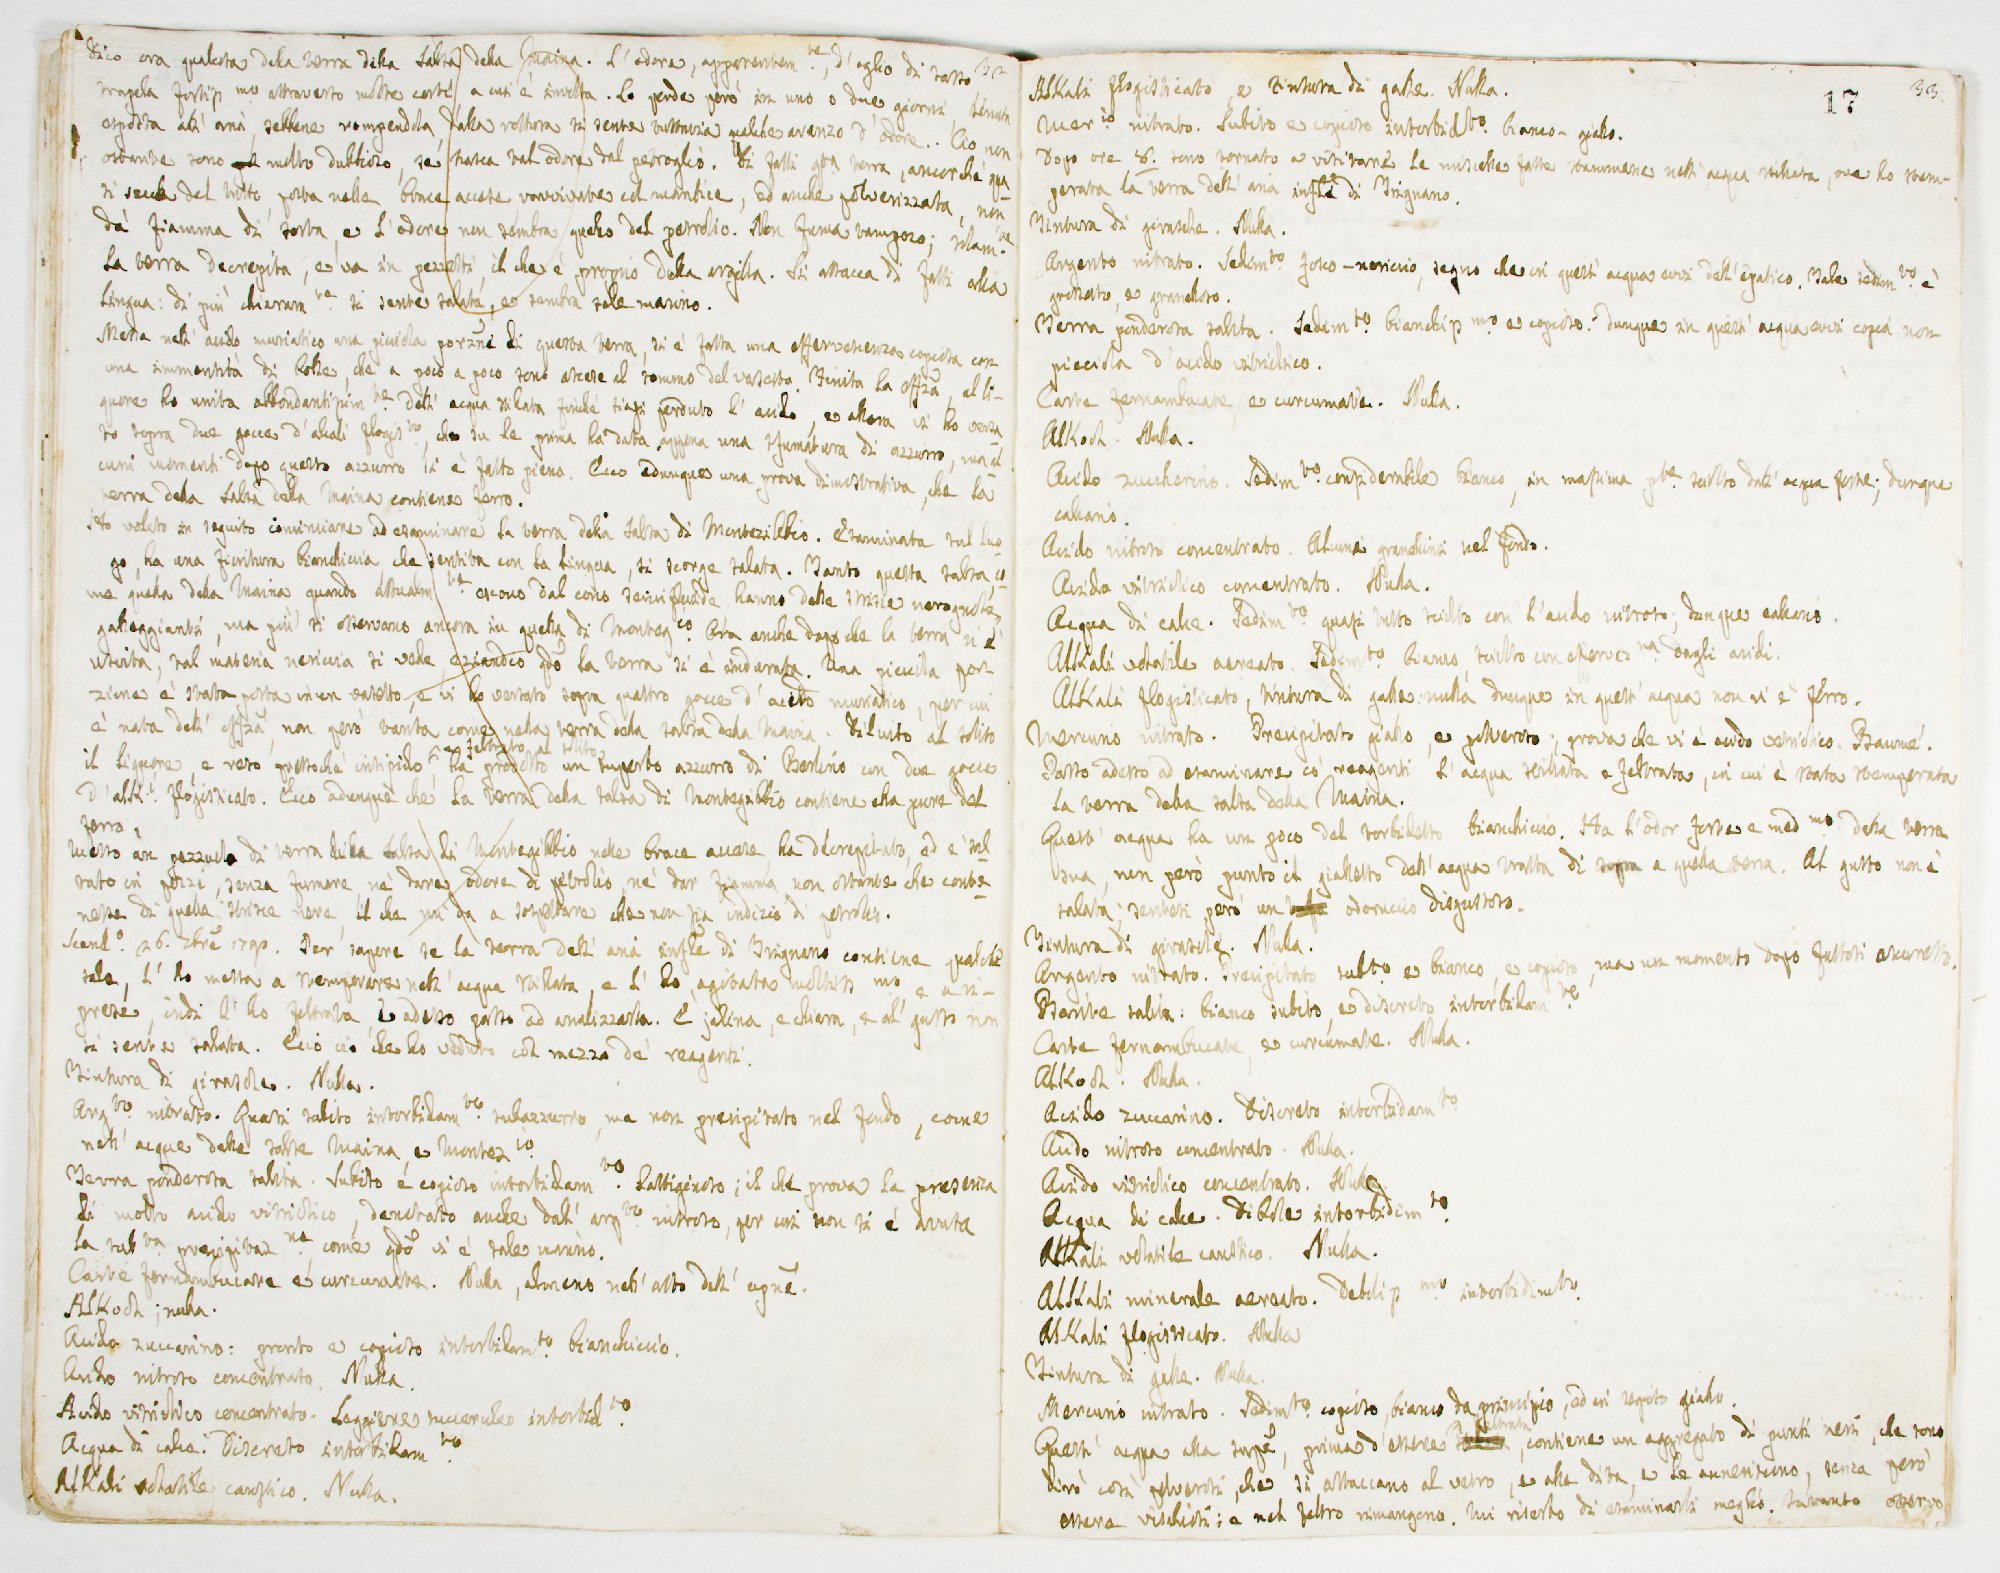 Dico ora qualcosa della terra della Salsa della Maina. L'odore, apparentem.te, d'oglio di sasso 32
trapela fortiss.mo attraverso molte carte, a cui è involta. Lo perde però in uno o due giorni, tenuta
esposta all'aria, sebbene rompendola, dalla rottura si sente tuttavia qualche avanzo d'odore. Ciò non
ostante sono molto dubbioso, se nasca tal odore dal petroglio. Di fatti q.ta terra, ancorché qua-
si secca del tutto, posta nelle brace accese ravvivate col mantice, ed anche polverizzata, non
dà fiamma di sorta, e l'odore non sembra quello del petrolio. Non fuma tampoco; solam.te
la terra decrepita, e va in pezzetti, il che è proprio della argilla. Si attacca di fatti alla
lingua: di più chiaram.te si sente salata, e sembra sale marino.
Messa nell'acido muriatico una piccola porzne di questa terra, si è fatta una effervescenza copiosa con
una immensità di bolle, che a poco a poco sono ascese al sommo del vasetto. Finita la effza, al li-
quore ho unita abbondantissim.te dell'acqua stillata finché siasi perduto l'acido, e allora vi ho versa-
to sopra due gocce d'alcali flogis.to, che su le prime ha data appena una sfumatura di azzurro, ma al-
cuni momenti dopo questo azzurro si è fatto pieno. Ecco adunque una prova dimostrativa, che la
terra della Salsa della Maina contiene ferro.
Ho voluto in seguito cominciare ad esaminare la terra della salsa di Montezibbio. Esaminata sul luo-
go, ha una fioritura bianchiccia, che sentita con la lingua, si scorge salata. Tanto questa salsa co-
me quella della Maina quando attualm.te escono dal cono semifluide hanno delle strisce nerognole,
galleggianti, ma più si osservano ancora in quella di Monteg.io. Ora anche dopo che la terra n'è
uscita, tal materia nericcia si vede eziandio qdo la terra si è indurata. Una piccola por-
zione è stata posta in un vasetto, e vi ho versato sopra quattro gocce d'acido muriatico, per cui
è nata dell'effza, non però tanta come nella terra della salsa della Maina. Diluito al solito
il liquore, e reso pressoché insipido, e feltrato al solito, ha prodotto un superbo azzurro di Berlino con due gocce
d'alk.i flogisticato. Ecco adunque che la terra della salsa di Montegibbio contiene ella pure del
ferro.
Messo un pezzuolo di terra della Salsa di Montegibbio nelle brace accese ha decrepitato, ed è sal-
tato in pezzi, senza fumare, né dare odore di petrolio, né dar fiamma non ostante che conte-
nesse di quelle strisce nere, il che mi dà a sospettare che non sia indizio di petrolio.
Scand.o 26. 7bre 1790. Per sapere se la terra dell'aria inflle di Brignano contiene qualche
sale, l'ho messa a stemperare nell'acqua stillata, e l'ho agitata moltiss.mo e a ri-
prese, indi l'ho feltrata, e adesso passo ad analizzarla. È jalina, e chiara, e al gusto non
si sente salata. Ecco ciò che ho veduto col mezzo de' reagenti.
Tintura di girasole. Nulla.
Arg.to nitrato. Quasi subito intorbidam.to subazzurro, ma non precipitato nel fondo, come
nell'acque delle salse Maina e Montez.io
Terra ponderosa salita. Subito e copioso intorbidam.to lattiginoso; il che prova la presenza
di molto acido vitriolico, denotato anche dall'arg.to nitroso, per cui non si è avuta
la sub.ta precipitaz.ne come qdo vi è sale marino.
Carte fernambucate e curcumate. Nulla, almeno nell'atto dell'ugne.
Alkool; nulla.
Acido zuccarino: pronto e copioso intorbidam.to bianchiccio.
Acido nitroso concentrato. Nulla.
Acido vitriolico concentrato. Leggiere ceruleo intorbid.to
Acqua di calce. Discreto intorbidam.to
Alkali volatile caustico. Nulla.
33.
17
Alkali flogisticato e tintura di galle. Nulla.
Mer.io nitrato. Subito e copioso intorbid.to bianco-giallo.
Dopo ore 8. sono tornato a visitare le mischie fatte stammane nell'acqua stillata, ove ho stem-
perata la terra dell'aria inflle di Brignano.
Tintura di girasole. Nulla.
Argento nitrato. Sedim.to fosco-nericcio, segno che in quest'acqua evvi dell'epatico. Tale sedim.to è
grossetto, e granelloso.
Terra ponderosa salita. Sedim.to bianchiss.mo e copioso: dunque in quest'acqua evvi copia non
picciola d'acido vitriolico.
Carte fernambucate, e curcumate. Nulla.
Alkool. Nulla.
Acido zuccherino. Sedim.to considerabile bianco, in massima p.te sciolto dall'acqua forte; dunque
calcario.
Acido nitroso concentrato. Alcuni granellini nel fondo.
Acido vitriolico concentrato. Nulla.
Acqua di calce. Sedim.to quasi tutto sciolto con l'acido nitroso; dunque calcario.
Alkali volatile aereato. Sedim.to bianco, sciolto con effervez.na dagli acidi.
Alkali flogisticato, tintura di galle: nulla dunque in quest'acqua non vi è ferro.
Mercurio nitrato. Precipitato giallo, e polveroso; prova che vi è acido vetriolico. Baumé.
Passo adesso ad esaminare co' reagenti l'acqua stillata e feltrata, in cui è stata stemperata
la terra della salsa della Maina.
Quest'acqua ha un poco del torbidetto bianchiccio. Ha l'odor forte e med.mo della terra
sua, non però punto il gialletto dell'acqua tratta di sopra a quella terra. Al gusto non è
salata; sentesi però un odoruccio disgustoso.
Tintura di girasole. Nulla.
Argento nitrato. Precipitato sub.to e bianco, e copioso, ma un momento dopo fattosi oscuretto.
Barite salita: bianco subito, e discreto intorbidam.to
Carte fernambucate, e curcumate. Nulla.
Alkool. Nulla.
Acido zuccarino. Discreto intorbidam.to
Acido nitroso concentrato. Nulla.
Acido vitriolico concentrato. Nulla.
Acqua di calce. Dibole intorbidim.to
Alkali volatile caustico. Nulla.
Alkali minerale aereato. Deboliss.mo intorbidim.to
Alkali flogisticato. Nulla
Tintura di galle. Nulla.
Mercurio nitrato. Sedim.to copioso, bianco da principio, ed in seguito giallo.
Quest'acqua alla superf., prima d'essere feltrata, contiene un aggregato di punti neri, che sono
dirò così polverosi, che si attaccano al vetro, e alle dita, e le anneriscono, senza però
essere vischiosi; e nel feltro rimangono. Mi riserbo di esaminarli meglio. Intanto osservo,